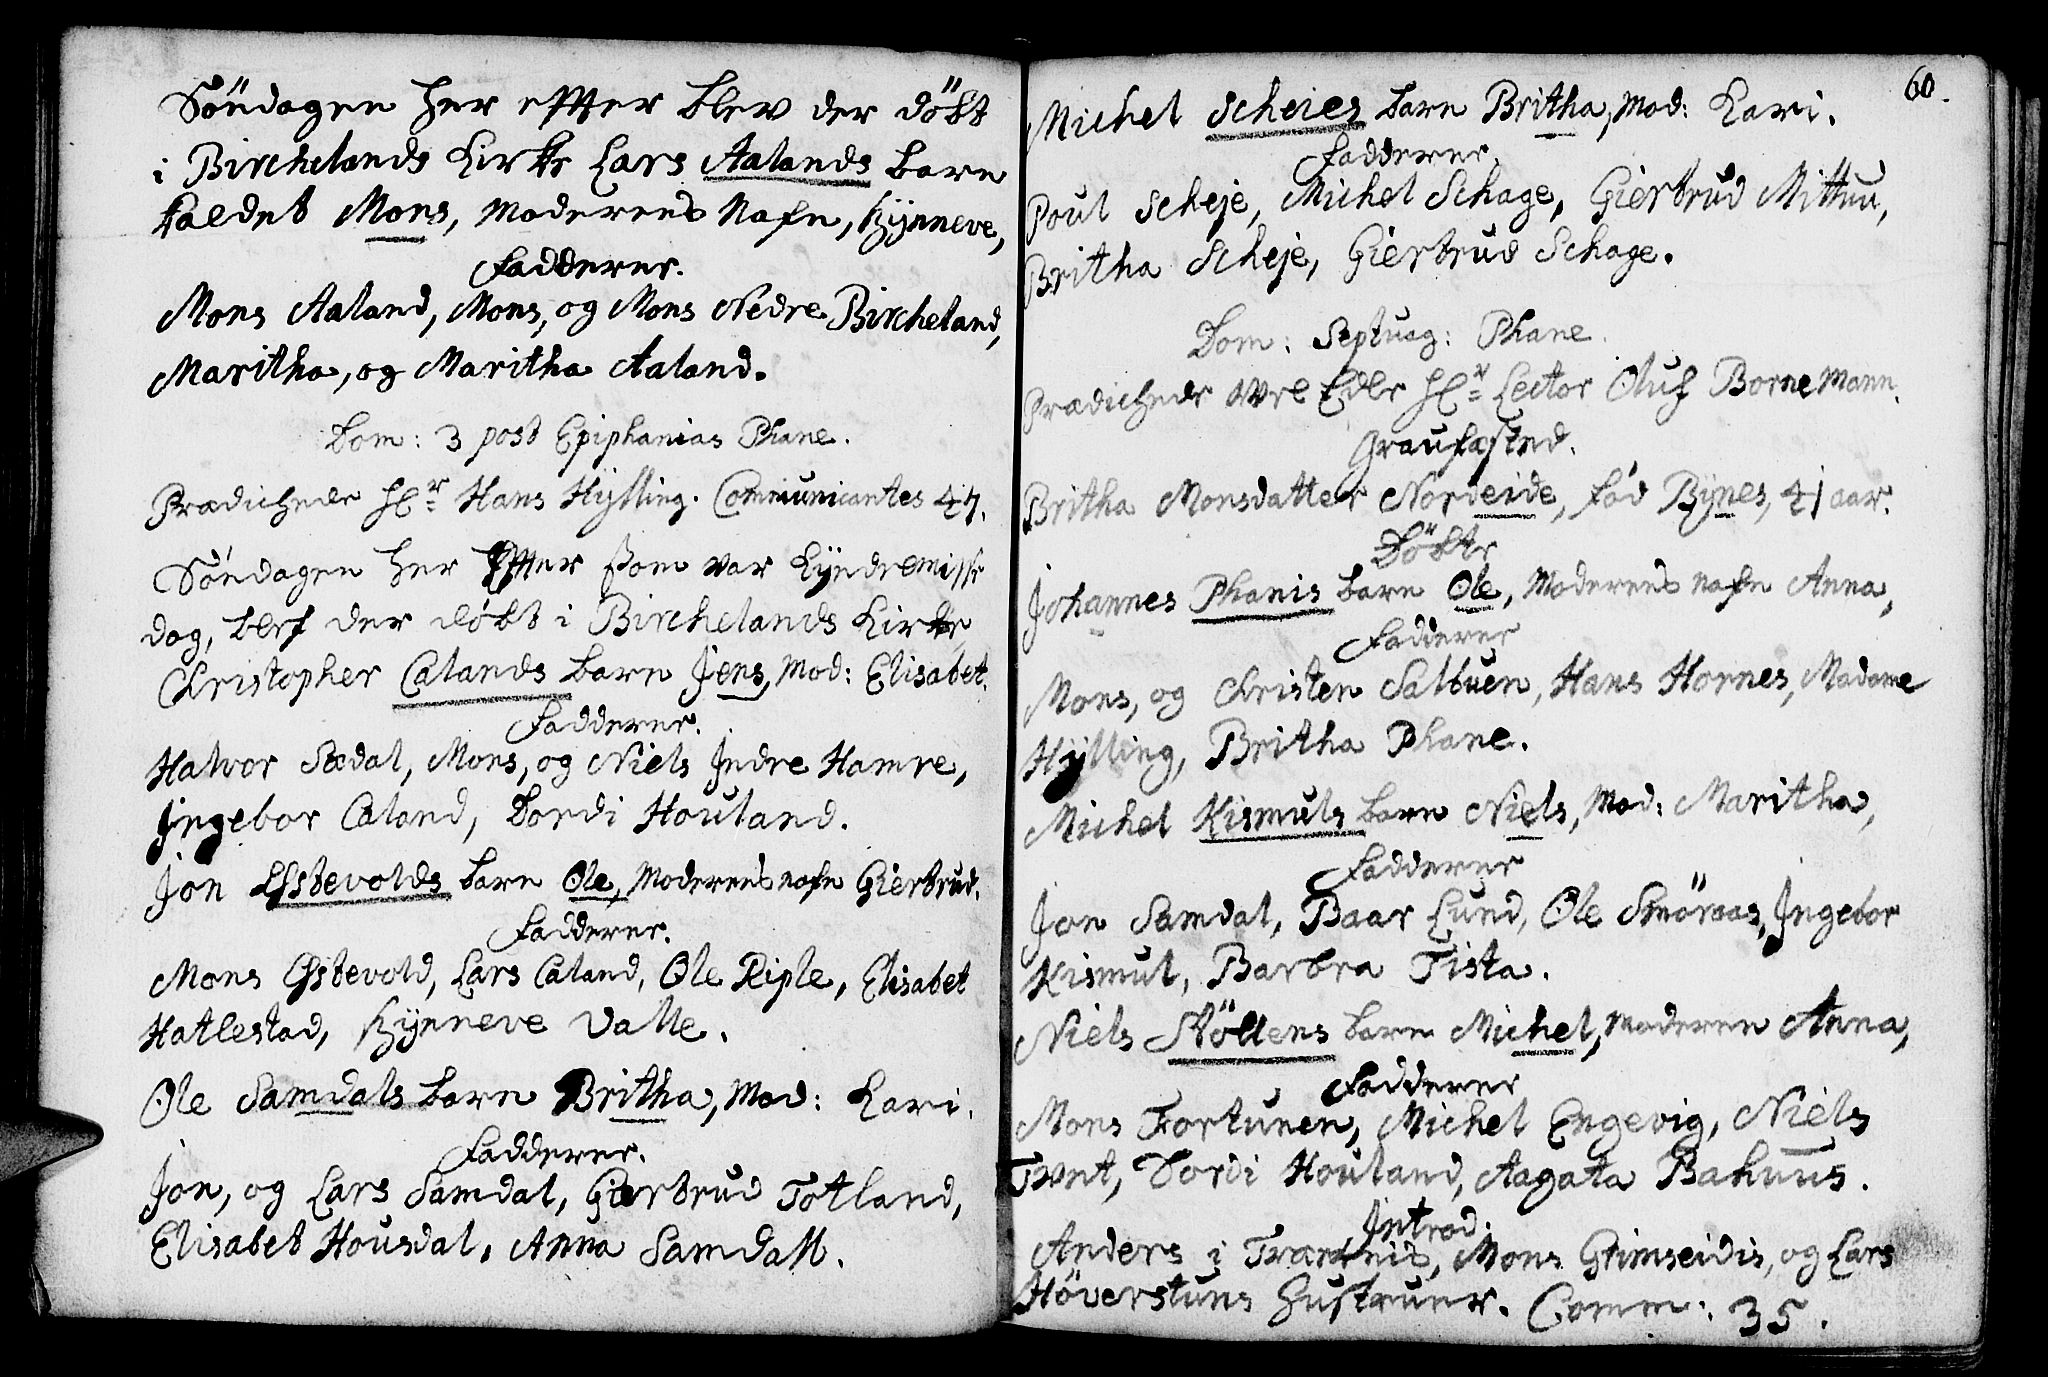 Söndagen her effter blev der döbt
i Birchelands Kirke Lars Aalands barn
kaldet Mons, Moderens Nafn, Synneve,
Fadderer.
Mons Aaland, Mons, og Mons Nedre Bircheland,
Maritha, og Maritha Aaland.
Dom: 3 post Epiphanias Phane.
Prædichede Hr Hans Hylling. Communicantes 47.
Söndagen her Effter som var Kyndelmisse
dag, blef der döbt i Birchelands Kirke,
Christopher Calands barn Jens, Mod: Elisabet.
Fadderer.
Halvor Sædal, Mons, og Niels Indre Hamre,
Ingebor Caland, Dordi Houland.
Jon Espevolds barn Ole, Moderens nafn Giertrud.
Fadderer.
Mons Espevold, Lars Caland, Ole Riple, Elisabet
Hatlestad, Synneve Valle.
Ole Samdals barn Britha, Mod: Kari.
Fadderer.
Jon, og Lars Samdal, Giertrud Totland,
Elisabet Housdal, Anna Samdall.
60.
Michel Scheies barn Britha, Mod: Kari.
Fadderer.
Poul Scheje, Michel Schage, Giertrud Mittun,
Britha Scheje, Giertrud Schage.
Dom: Septuag: Phane.
Prædichede Vel Edle Hr Lector Oluf Bornemann.
Graufæsted.
Britha Monsdatter Nordeide, fød Bynes, 41 aar.
Döbte
Johannes Phanis barn Ole, Moderens nafn Anna,
Fadderer
Mons, og Christen Saltuen, Hans Hornes, Madame
Hylling, Britha Phane.
Michel Kismuls barn Niels, Mod: Maritha,
Fadderer
Jon Samdal, Baar Lund, Ole Smöraas, Ingebor
Kismul, Barbra Tista.
Niels Stöllens barn Michel, Moderen Anna,
Fadderer
Mons Fortunen, Michel Engevig, Niels
Tvet, Dordi Houland, Aagata Bakuus.
Introd:
Anders i Tværnis, Mons Grimseidis, og Lars
Höverstuns Hustruer. Comm: 35.